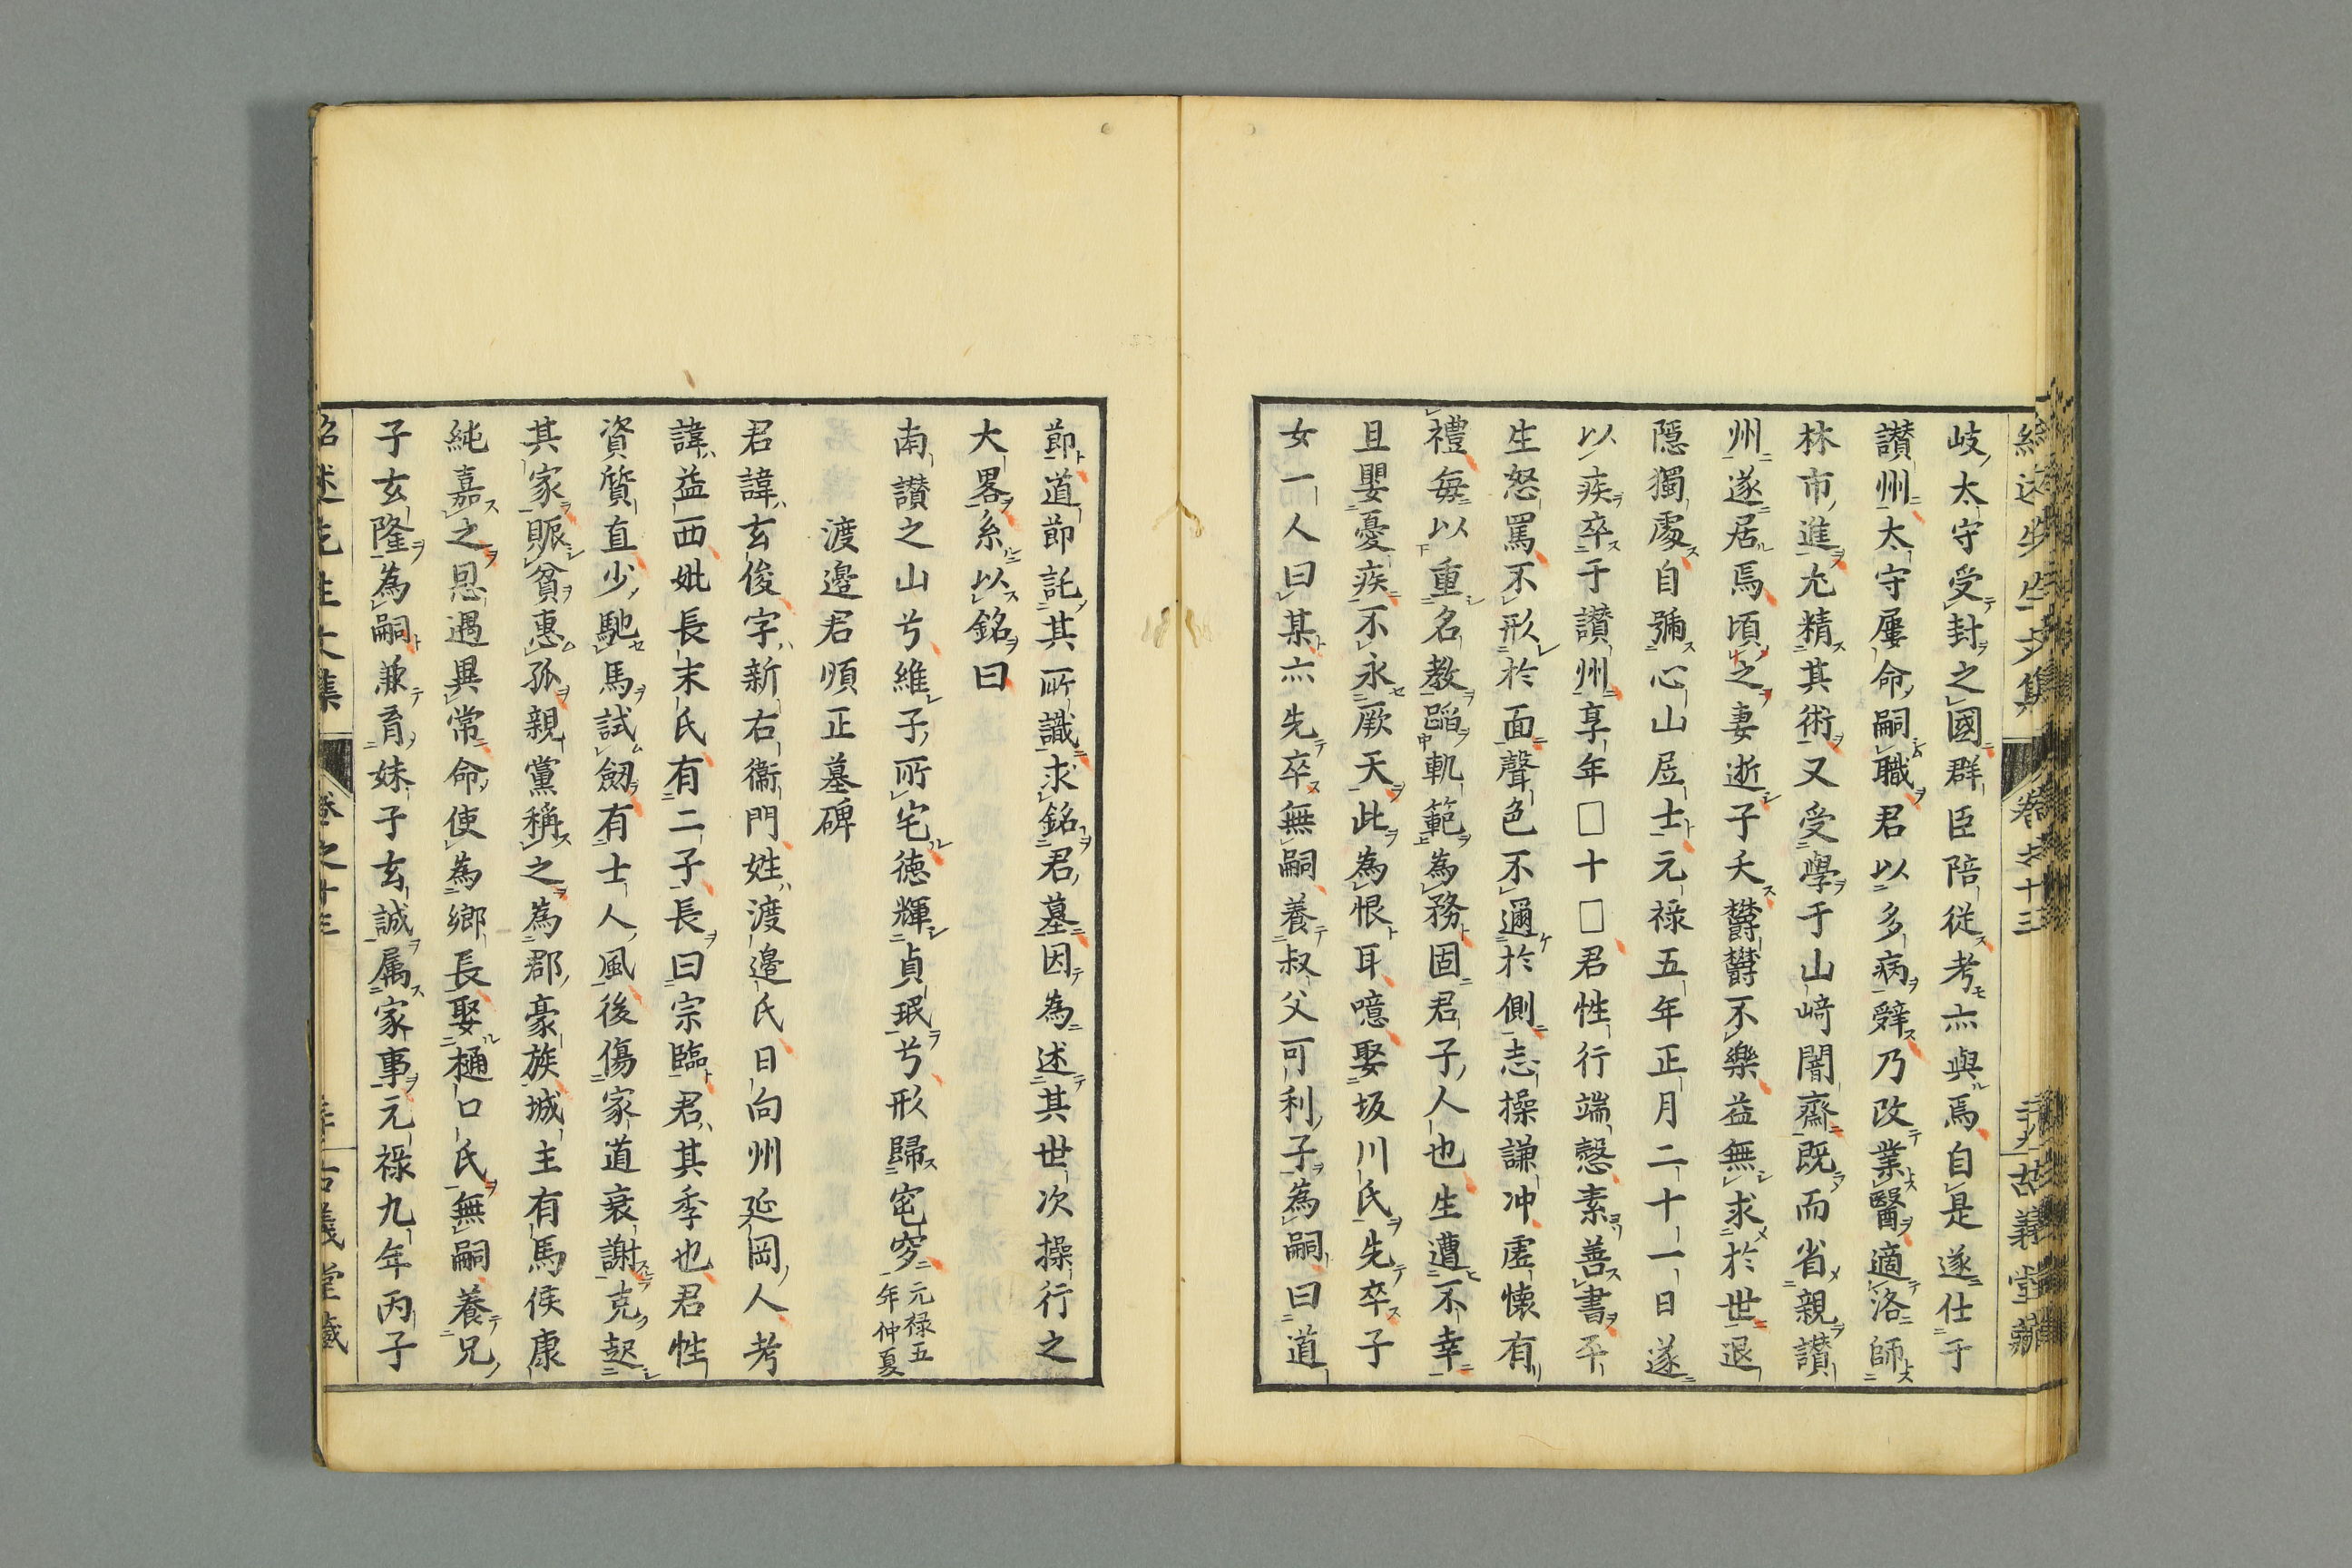 岐太守受封之國群臣陪從考亦與焉自是遂仕于
讃州太守屢命嗣職君以多病辭乃改業醫適洛師
林市進尤精其術又受學于山﨑闇齋既而省親讃
州遂居焉頃之妻逝子夭欝欝不樂益無求於世退
隠獨處自號心山居士元禄五年正月二十一日遂
以疾卒于讃州享年□十□君性行端愨素善書平
生怒罵不形於面聲色不邇於側志操謙冲虚懐有
禮毎以重名教蹈軌範為務固君子人也生遭不幸
且嬰憂疾不永厥天此為恨耳噫娶坂川氏先卒子
女一人曰某亦先卒無嗣養叔父可利子為嗣曰道
節道節託其所識求銘君墓因為述其世次操行之
大畧系以銘曰
南讃之山兮維子所宅徳輝貞珉兮形歸窀穸元禄五年仲夏
渡邉君順正墓碑
君諱玄俊字新右衞門姓渡邉氏日向州延岡人考
諱益西妣長末氏有二子長曰宗臨君其季也君性
資質直少馳馬試劔有士人風後傷家道衰謝克起
其家賑貧惠孤親黨稱之為郡豪族城主有馬侯康
純嘉之恩遇異常命使為鄉長娶樋口氏無嗣養兄
子玄隆為嗣兼育妹子玄誠属家事元禄九年丙子
紹述先生文集 卷之十三 古義堂藏